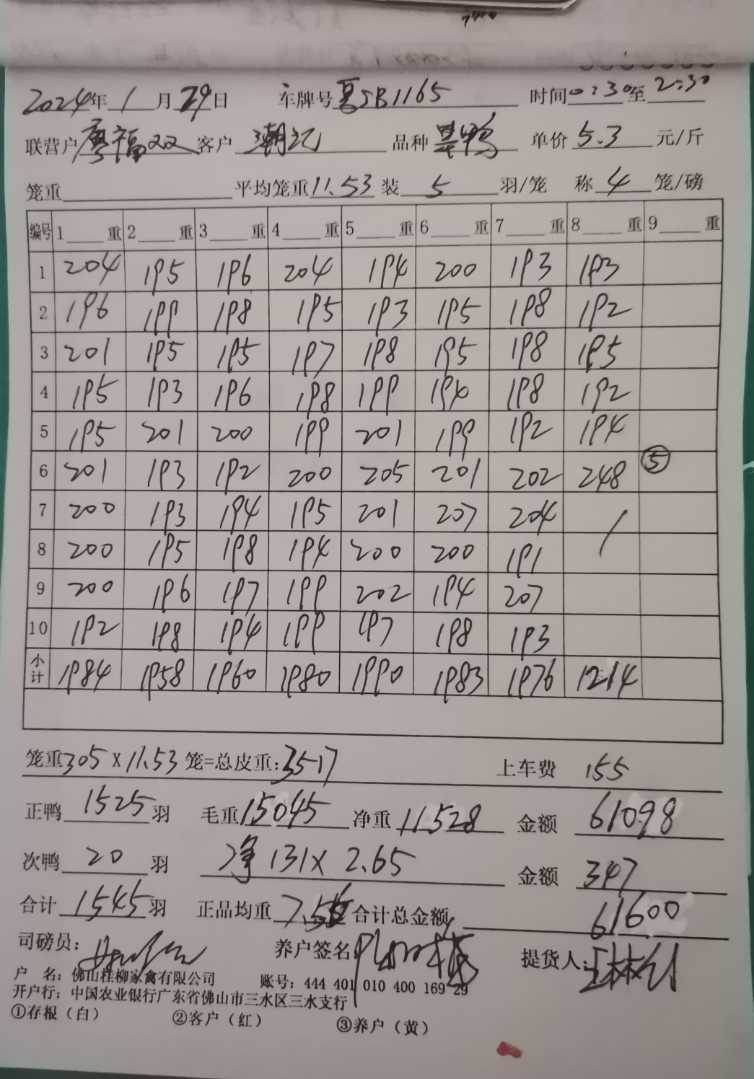 2024年 1 月 29 日 车牌号 SB1165 时间 0:30 至 2:30
联营户 廖福双 客户 潮记 品种 鸭 单价 5.3 元/斤
笼重 平均笼重 11.53 装 5 羽/笼 称 4 笼/磅
编号 1 重 2 重 3 重 4 重 5 重 6 重 7 重 8 重 9 重
1 204 195 196 204 194 200 193 193
2 196 199 198 195 193 195 198 192
3 201 195 195 197 198 195 198 195
4 195 193 196 198 199 194 198 192
5 195 201 200 199 201 199 192 194
6 201 193 192 200 205 201 202 248 ⑤
7 200 193 194 195 201 207 204 /
8 200 195 198 194 200 200 191
9 200 196 197 199 202 194 207
10 192 198 194 199 197 198 193
小计 1984 1958 1960 1980 1990 1983 1976 1214
笼重 305 X 11.53 笼=总皮重: 3517 上车费 155
正鸭 1525 羽 毛重 15045 净重 11528 金额 61098
次鸭 20 羽 净 131 X 2.65 金额 347
合计 1545 羽 正品均重 7.56 合计总金额 61600
司磅员: 养户签名 提货人:
户 名: 佛山桂柳家禽有限公司 账号: 444 401 010 400 169 29
开户行: 中国农业银行广东省佛山市三水区三水支行
①存根（白） ②客户（红） ③养户（黄）